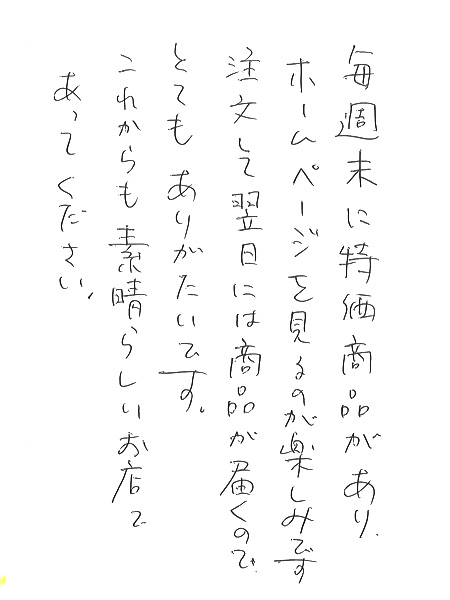 毎週末に特価商品があり、
ホームページを見るのが楽しみです
注文して翌日には商品が届くので、
とてもありがたいです。
これからも素晴らしいお店で
あってください。